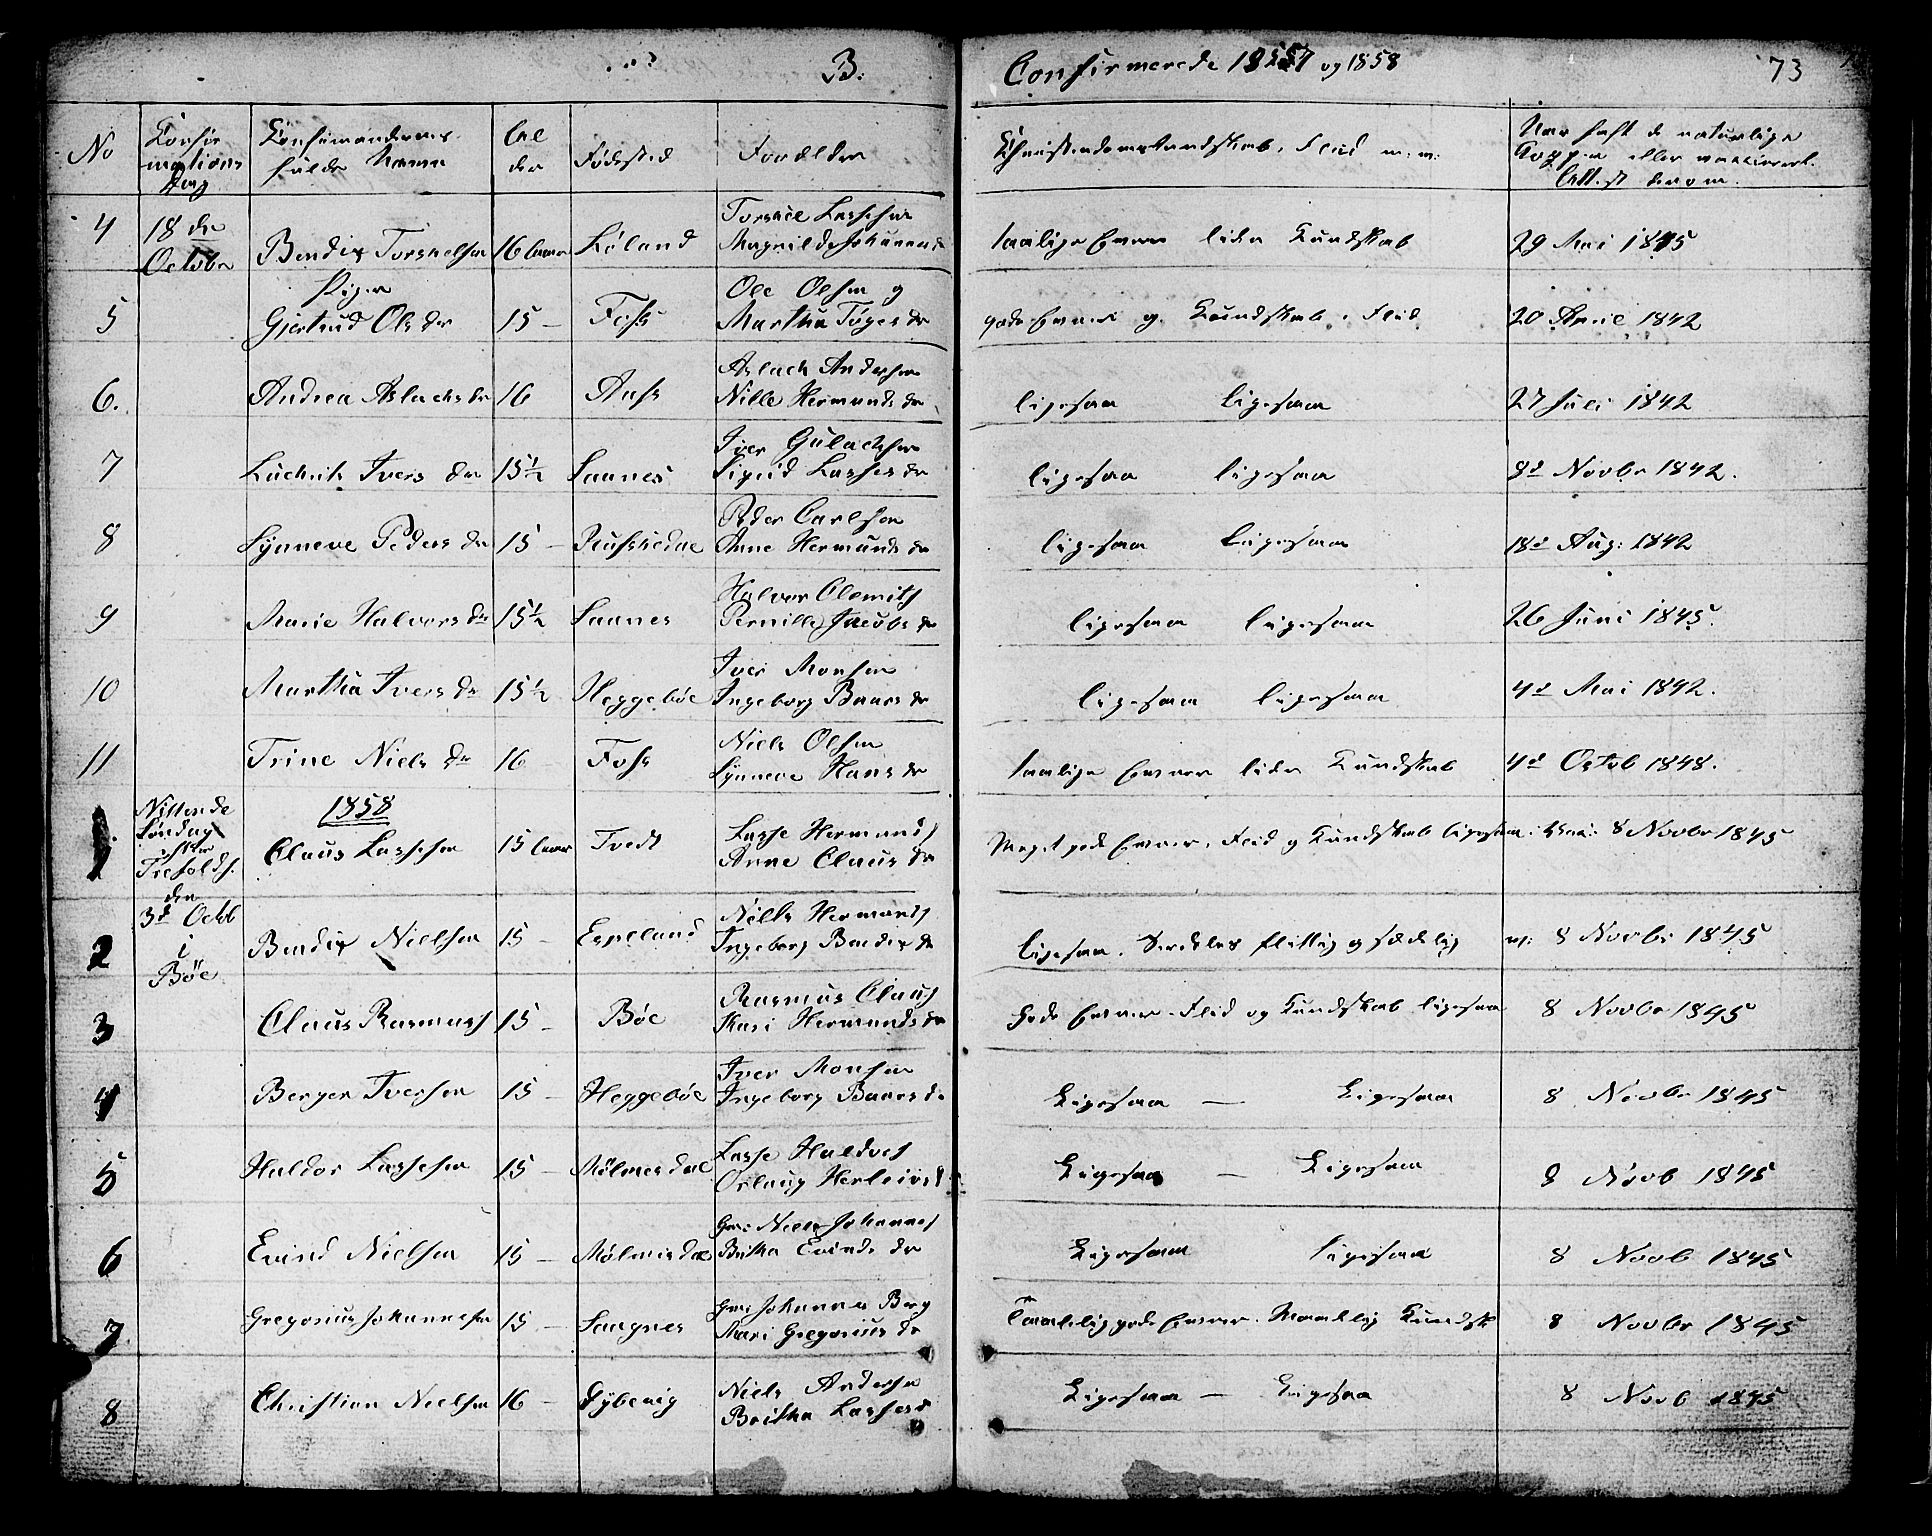 B. Confirmerede 1857 og 1858 73
No Confirmations Dag Confirmandernes fulde Navne Alder Fødested Forældre Christendomskundskab, Flid m: m: Naar haft de naturlige Kopper eller vaccineret. Attest derom.
4 18de October Bendix Torkelsen 16 Aar Løland Torkel Lassesen Magnilde Johannesdr maalige Evner liden Kundskab 29 Mai 1845
Piger
5 Gjertrud Olsdr 15 – Foss Ole Olsen og Martha Tøgersdr gode Evner og Kundskab, Flid. 20 April 1842
6. Andrea Aslachsdr 16 Aase Aslach Andersen Nille Hermundsdr ligesaa ligesaa 27 Juli 1842
7 Ivers dr 15½ Saanes Iver Gulachsen Sigrid Lassesdr ligesaa ligesaa 8d Novbr 1842.
8 Synneve Peders dr 15 – Peder Carlsen Anne Hermundsdr ligesaa Ligesaa 18d Aug: 1842
9 Marie Halvorsdr 15½ Saanes Halvor Clemits Pernille Jacobsdr ligesaa ligesaa 26 Juni 1845.
10 Martha Iversdr 15½ Heggebøe Iver Monsen Ingeborg Baarsdr ligesaa ligesaa 4d Mai 1842.
11 Trine Nielsdr 16 – Foss Niels Olsen Synneve Hansdr maalige Evner liden Kundskab 4d Octob 1848.
1858
1. Nittende Søndag efter Trefoldh. den 3d Octb i Bøe Claus Lassesen 15 Aar Tvedt Lasse Hermunds Anne Clausdr Meget gode Evner, Flid og Kundskab ligesaa 8 Novbr 1845
2 Bendix Nielsen 15 – Espeland Niels Hermunds Ingeborg Bendixdr ligesaa. Særdeles flittig og sædelig 8 Novbr 1845
3 Claus Rasmus 15 – Bøe Rasmus Claus Kari Hermundsdr Gode Evner, Flid og Kundskab ligesaa 8 Novbr 1845
4 Berger Iversen 15 – Heggebøe Iver Monsen Ingeborg Baarsdr Ligesaa – Ligesaa 8 Novbr 1845
5 Haldor Lassesen 15 – Mølmesdal Lasse Haldors Oslaug Herleivsd Ligesaa – Ligesaa 8 Novb 1845
6 Evind Nielsen 15 – Mølmesdal Gm: Niels Johannes Britha Evindsdr Ligesaa ligesaa 8 Novb 1845
7 Gregorius Johannesen 15 – Saugnes Gm: Johannes Berg Mari Gregoriusdr Taalelig gode Evner. Maadelig Kundsk 8 Novbr 1845
8 Christian Nielsen 16 – Dybevig Niels Andersen Britha Lassesd Ligesaa – Ligesaa 8 Novb 1845